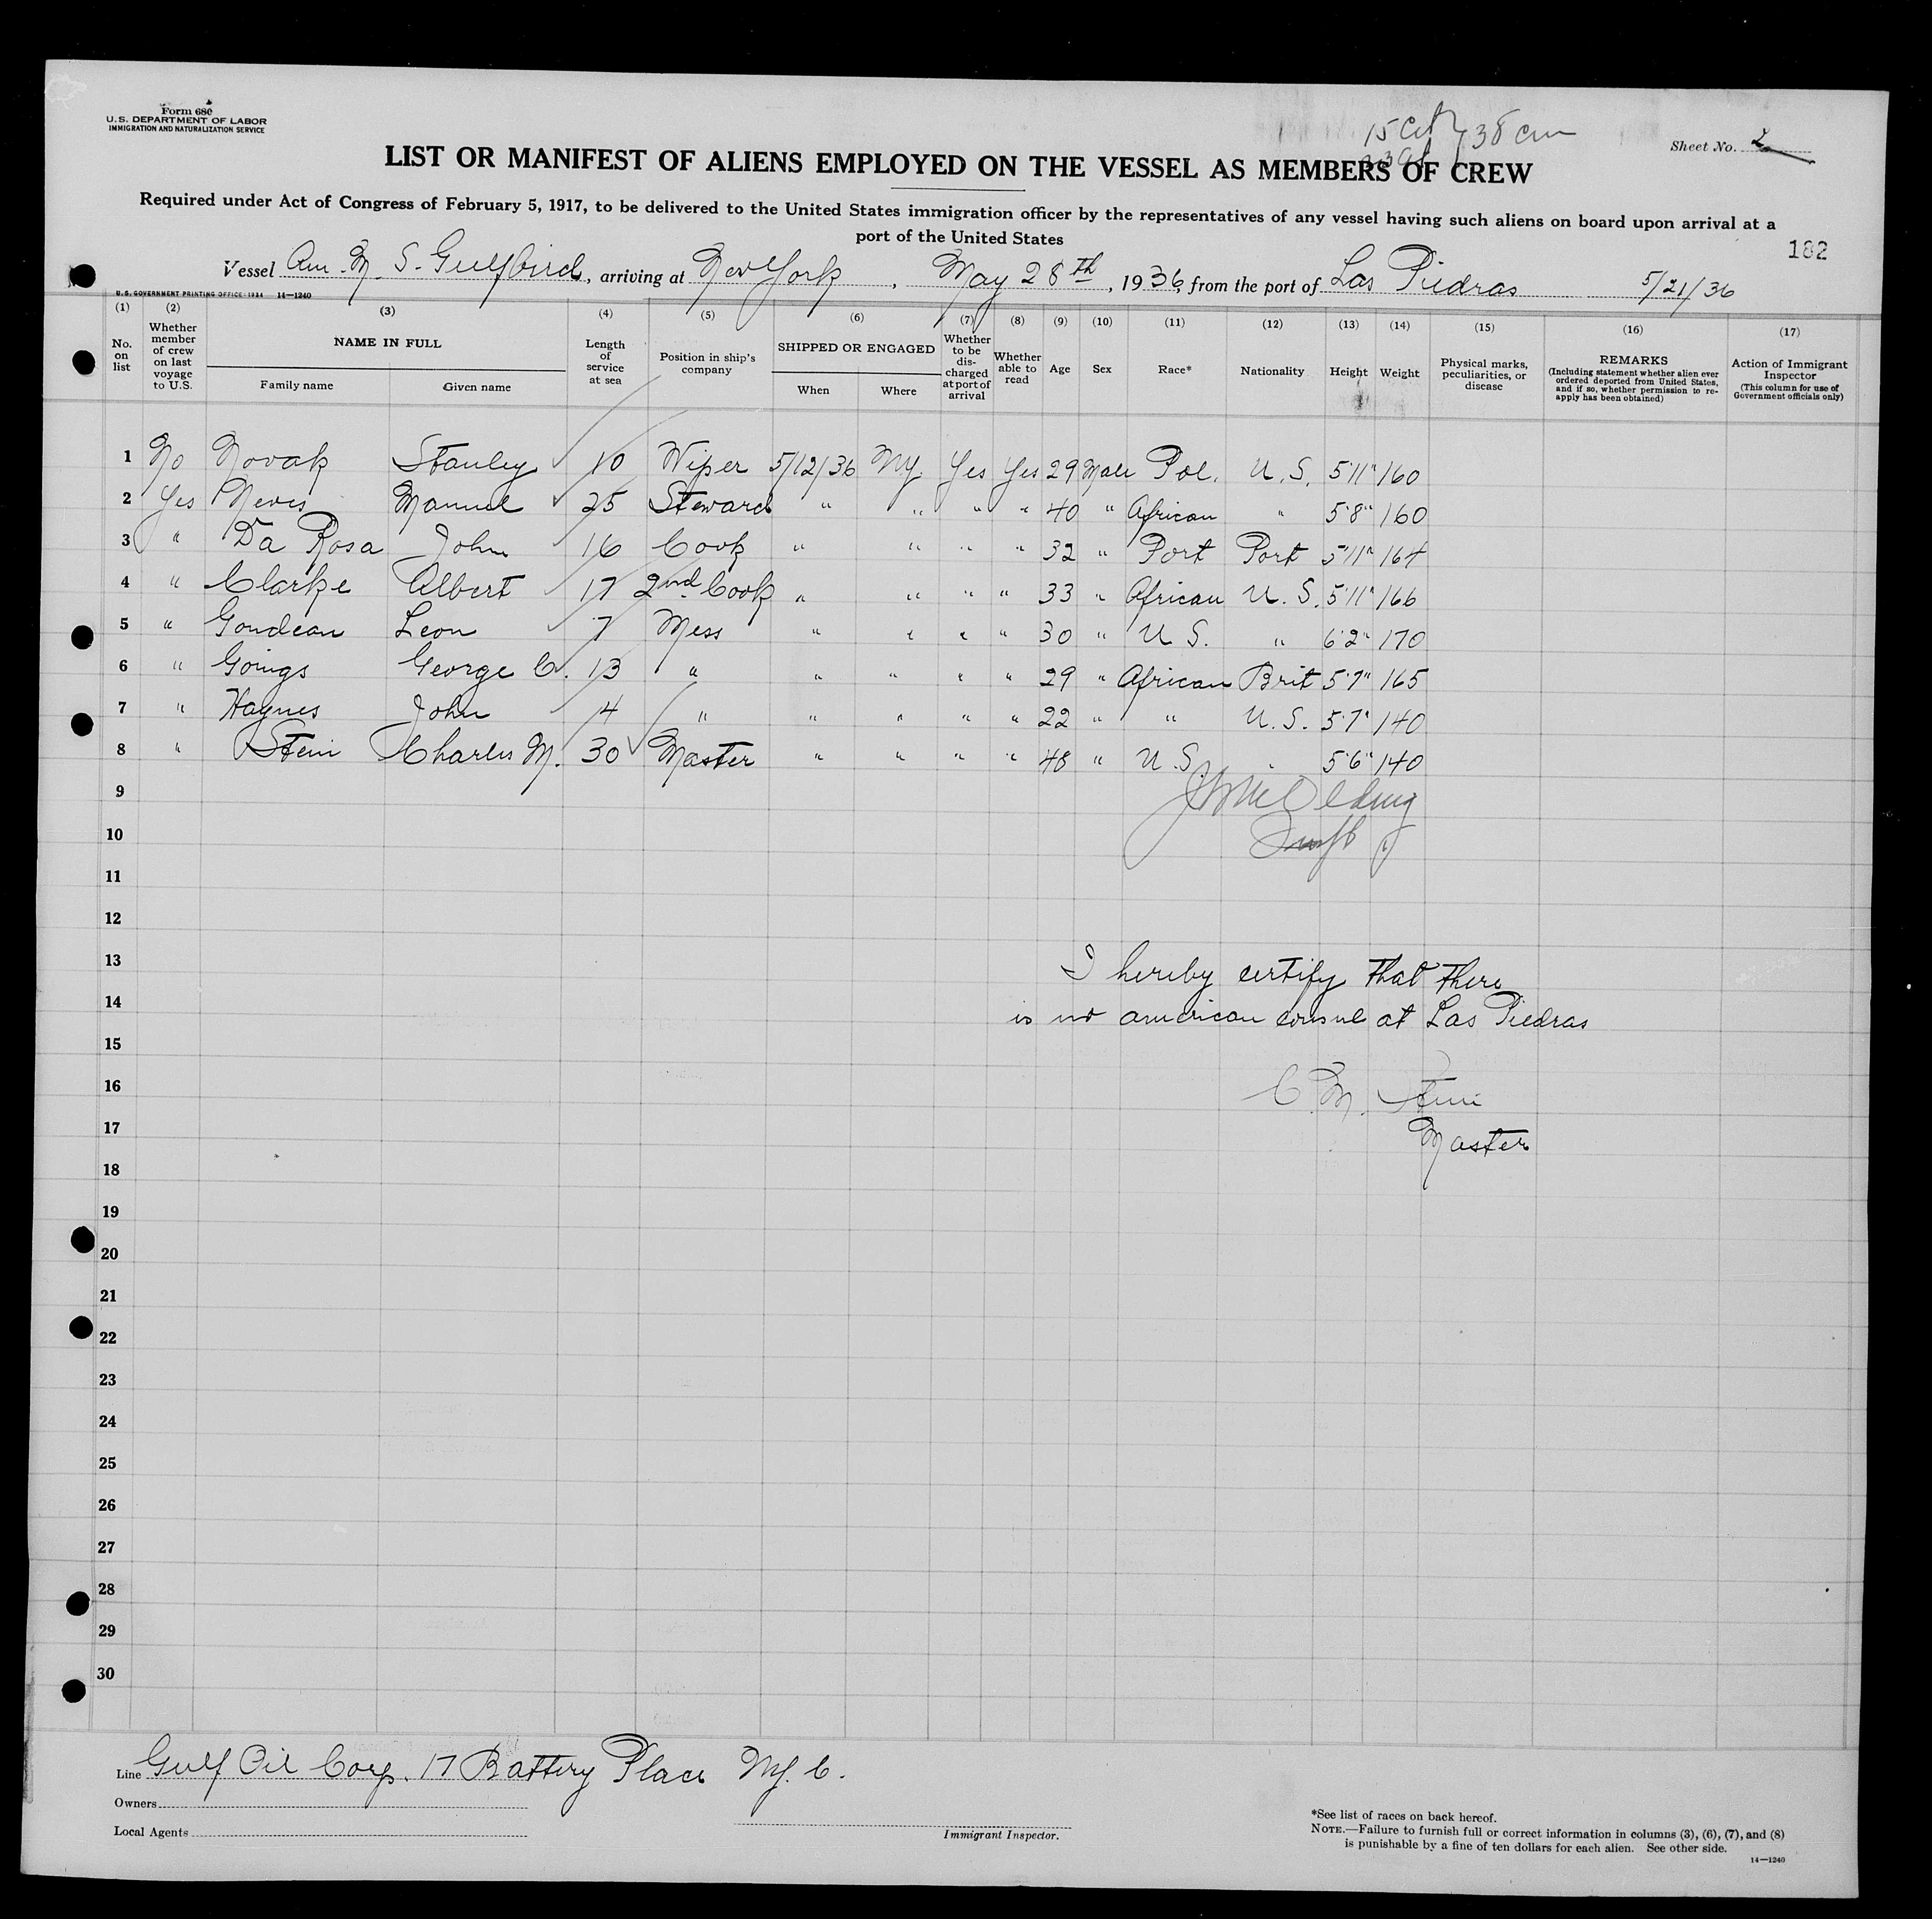 Form 680
U.S. DEPARTMENT OF LABOR
IMMIGRATION AND NATURALIZATION SERVICE
38 cm
Sheet No. 2
LIST OR MANIFEST OF ALIENS EMPLOYED ON THE VESSEL AS MEMBERS OF CREW
Required under Act of Congress of February 5, 1917, to be delivered to the United States immigration officer by the representatives of any vessel having such aliens on board upon arrival at a
port of the United States
182
Vessel Am. M. S. Gulfbird, arriving at New York, May 28th, 1936, from the port of Las Piedras 5/21/36
U.S. GOVERNMENT PRINTING OFFICE: 1934 14—1240
(1) (2) (3) (4) (5) (6) (7) (8) (9) (10) (11) (12) (13) (14) (15) (16) (17)
No. on list
Whether member of crew on last voyage to U.S.
NAME IN FULL
Family name Given name
Length of service at sea
Position in ship's company
SHIPPED OR ENGAGED
When Where
Whether to be discharged at port of arrival
Whether able to read
Age
Sex
Race*
Nationality
Height
Weight
Physical marks, peculiarities, or disease
REMARKS
(Including statement whether alien ever ordered deported from United States, and if so, whether permission to reapply has been obtained)
Action of Immigrant Inspector
(This column for use of Government officials only)
1 No Novak Stanley 10 Wiper 5/12/36 NY. Yes Yes 29 Male Pol. U.S. 5'11" 160
2 Yes Neves Manuel 25 Steward " " " " 40 " African " 5'8" 160
3 " Da Rosa John 16 Cook " " " " 32 " Port Port 5'11" 164
4 " Clarke Albert 17 2nd Cook " " " " 33 " African U.S. 5'11" 166
5 " Goudeau Leon 7 Mess " " " " 30 " U S. " 6'2" 170
6 " Goings George C. 13 " " " " " 29 " African Brit 5'7" 165
7 " Haynes John 4 " " " " " 22 " " U.S. 5'7" 140
8 " Stein Charles M. 30 Master " " " " 48 " U.S. " 5'6" 140
9
10
11
12
13
I hereby certify that there
14
is no american consul at Las Piedras
15
16
C. M. Stein
17
Master
18
19
20
21
22
23
24
25
26
27
28
29
30
Line Gulf Oil Corp. 17 Battery Place N.Y.C.
Owners
Local Agents
Immigrant Inspector.
*See list of races on back hereof.
NOTE.—Failure to furnish full or correct information in columns (3), (6), (7), and (8)
is punishable by a fine of ten dollars for each alien. See other side.
14—1240